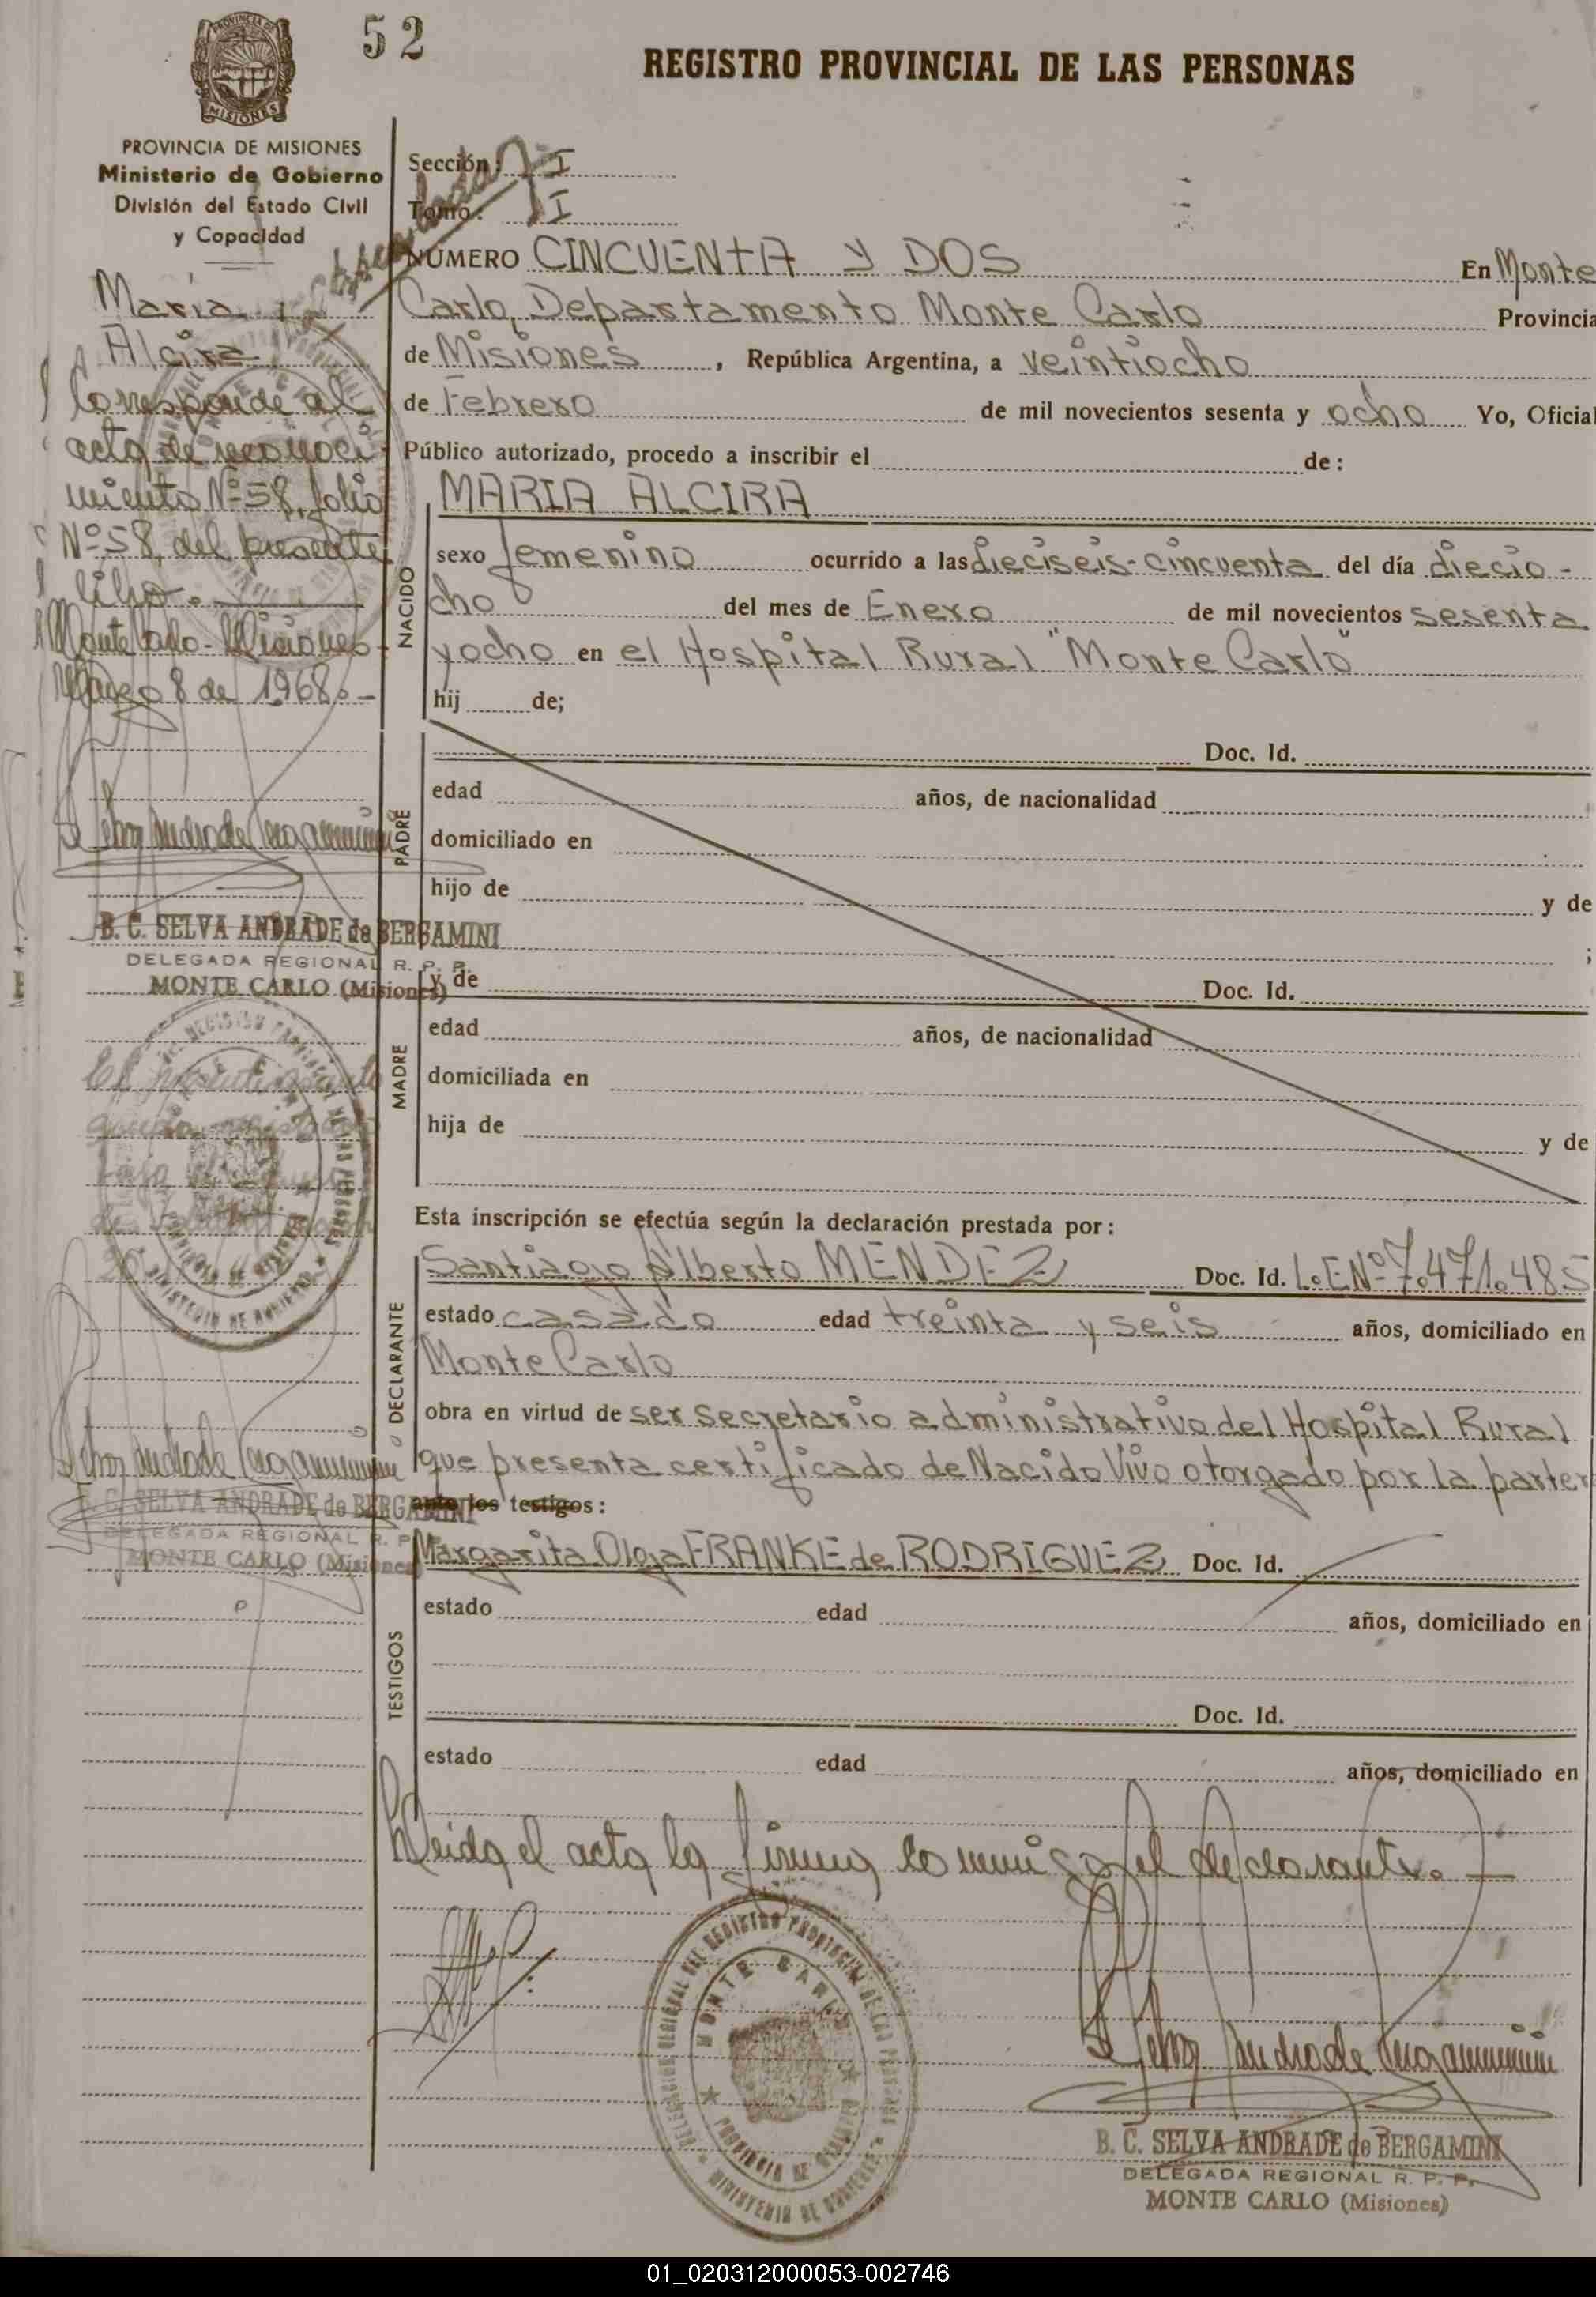 52
REGISTRO PROVINCIAL DE LAS PERSONAS
PROVINCIA DE MISIONES
Ministerio de Gobierno
División del Estado Civil
y Capacidad
Maria
Alcira
Corresponde al
acta de reconoci
miento Nº 58, folio
Nº 58, del presente
libro.
Monte Carlo - Misiones
Marzo 8 de 1968.-
B. C. SELVA ANDRADE de BERGAMINI
DELEGADA REGIONAL R. P. P.
MONTE CARLO (Misiones)
B. C. SELVA ANDRADE de BERGAMINI
DELEGADA REGIONAL R. P. P.
MONTE CARLO (Misiones)
Sección: I
Tomo: I
NÚMERO CINCUENTA Y DOS En Monte
Carlo, Departamento Monte Carlo Provincia
de Misiones, República Argentina, a veintiocho
de Febrero de mil novecientos sesenta y ocho Yo, Oficial
Público autorizado, procedo a inscribir el de:
NACIDO
MARIA ALCIRA
sexo femenino ocurrido a las dieciseis-cincuenta del día diecio-
cho del mes de Enero de mil novecientos sesenta
y ocho en el Hospital Rural "Monte Carlo"
hij de;
PADRE
Doc. Id.
edad años, de nacionalidad
domiciliado en
hijo de y de
;
MADRE
y de Doc. Id.
edad años, de nacionalidad
domiciliada en
hija de y de
Esta inscripción se efectúa según la declaración prestada por:
DECLARANTE
Santiago Alberto MENDEZ Doc. Id. L.E.Nº 7.471.485
estado casado edad treinta y seis años, domiciliado en
Monte Carlo
obra en virtud de ser secretario administrativo del Hospital Rural
que presenta certificado de Nacido Vivo otorgado por la parter
ante los testigos:
TESTIGOS
Margarita Olga FRANKE de RODRIGUEZ Doc. Id.
estado edad años, domiciliado en
Doc. Id.
estado edad años, domiciliado en
Leida el acta la firma conmigo el declarante.
MONTE CARLO
B. C. SELVA ANDRADE de BERGAMINI
DELEGADA REGIONAL R. P. P.
MONTE CARLO (Misiones)
01_020312000053-002746